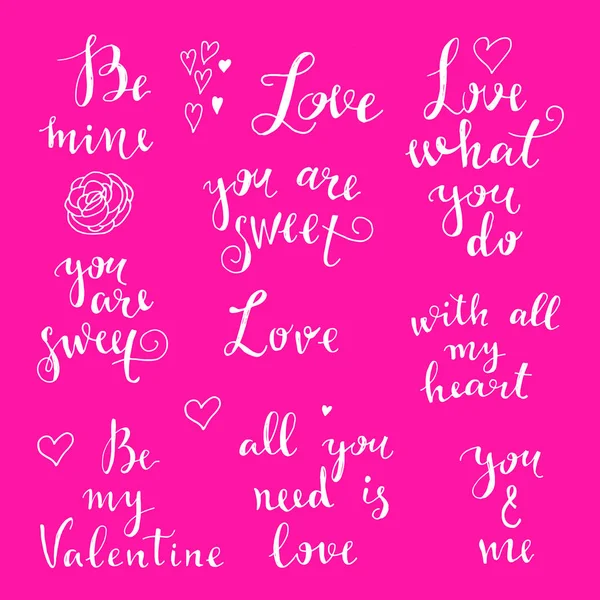 Be
mine
you
are
sweet
Be
my
Valentine
Love
you are
sweet
Love
all you
need is
love
Love
what
you
do
with all
my
heart
you
&
me